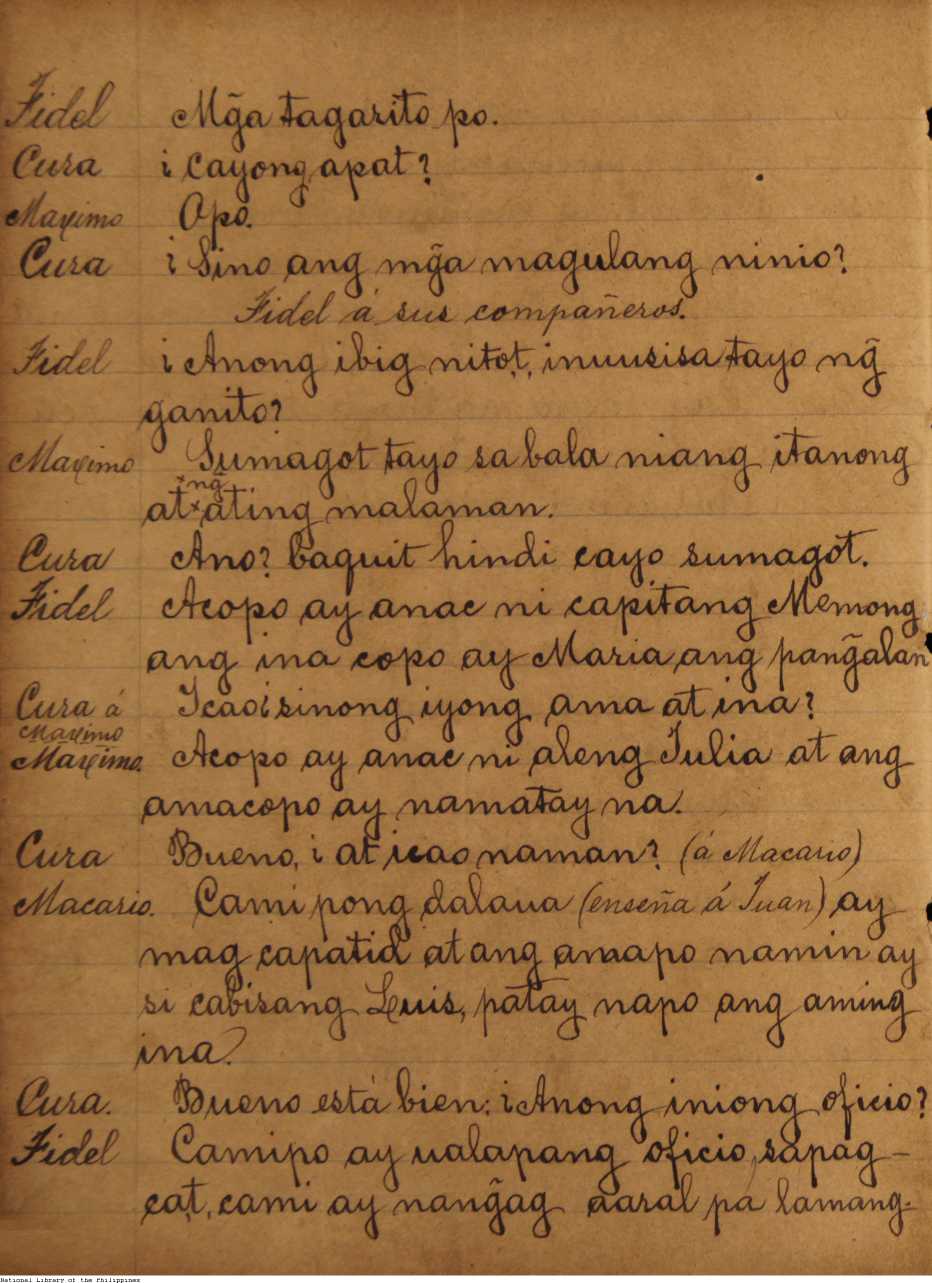 Fidel Mg̃a tagarito po.
Cura ¿Cayong apat?
Maximo Opo.
Cura ¿Sino ang mg̃a magulang ninio?
Fidel á sus compañeros.
Fidel ¿Anong ibig nitot, inuusisa tayo ng̃
ganito?
Maximo Sumagot tayo sa bala niang itanong
at ng ating malaman.
Cura Ano? baquit hindi cayo sumagot.
Fidel Acopo ay anac ni capitang Memong
ang ina copo ay Maria ang pang̃alan
Cura á Maximo Icao ¿sinong iyong ama at ina?
Maximo. Acopo ay anac ni aleng Julia at ang
amacopo ay namatay na.
Cura Bueno, ¿at icao naman? (á Macario)
Macario. Cami pong dalaua (enseña á Juan) ay
mag capatid at ang amapo namin ay
si cabisang Luis, patay napo ang aming
ina.
Cura. Bueno está bien: ¿Anong iniong oficio?
Fidel Camipo ay ualapang oficio, sapag-
cat, cami ay nang̃ag aaral pa lamang-
National Library of the Philippines